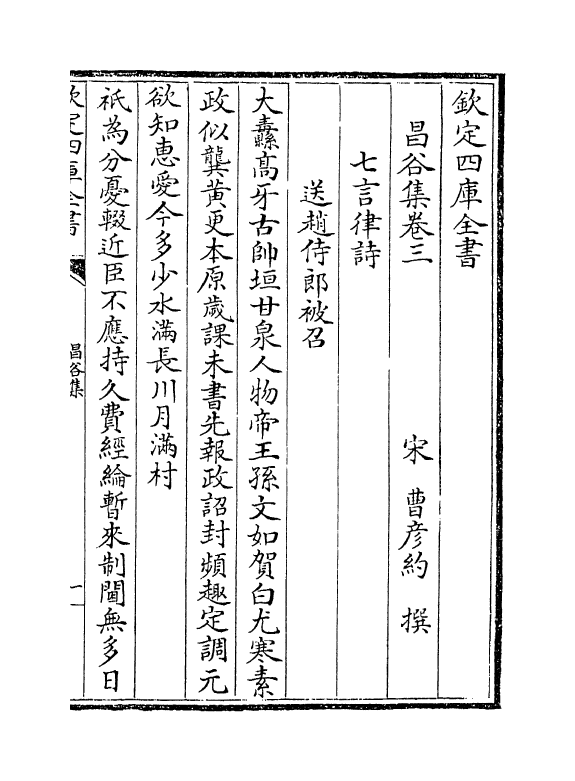 欽定四庫全書
昌谷集卷三
宋 曹彦約 撰
七言律詩
送趙侍郎被召
大纛高牙古帥垣甘泉人物帝王孫文如賀白尤寒素
政似龔黄更本原歳課未書先報政詔封頻趣定調元
欲知恵愛今多少水滿長川月滿村
祇為分憂輟近臣不應持久費經綸暫來制閫無多日
欽定四庫全書
昌谷集
一